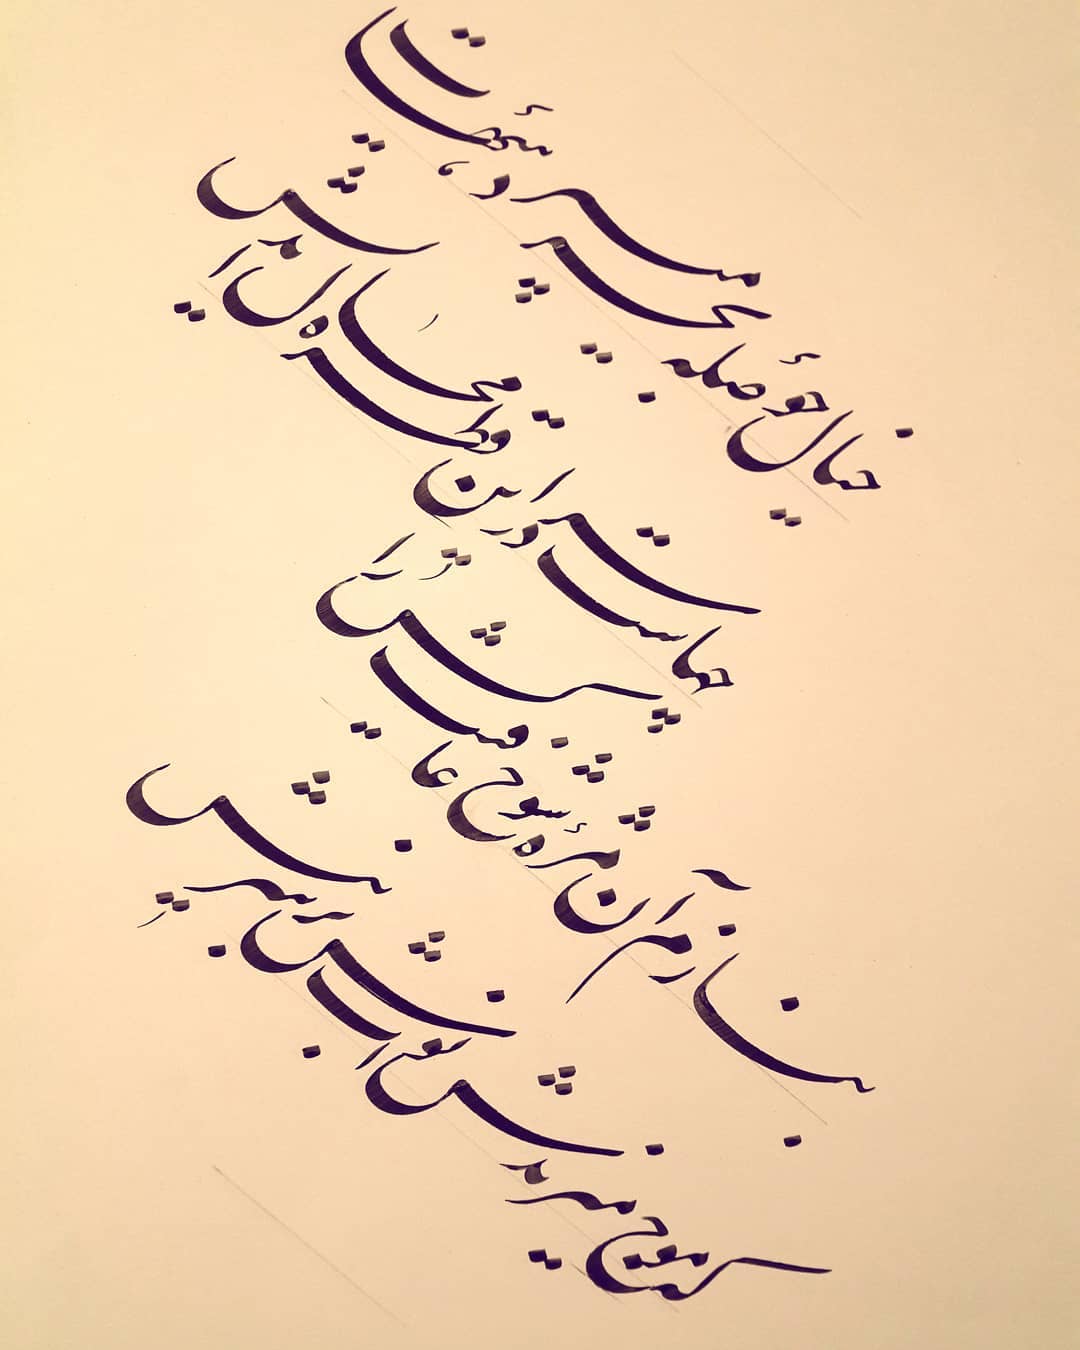 خیال حوصلهٔ بحر میپزد، هیهات
چهاست در سر این قطرهٔ محال اندیش
بنازم آن مژهٔ شوخ عافیت کش را
که موج میزندش آب نوش بر سر نیش